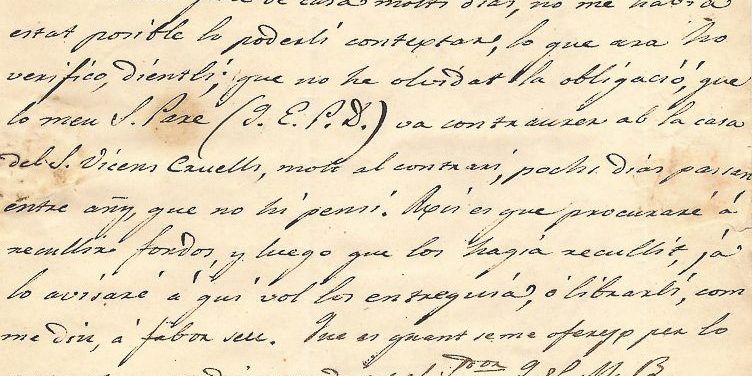 de casa molts dias, no me havia
estat posible lo poderli contextar, lo que ara ho
verifico, dientli; que no he olvidat la obligació, que
lo meu S. Pare (Q. E. P. D.) va contraurer ab la casa
del S. Vicens Cruells, molt al contrari, pochs dias pasan
entre añy, que no hi pensi. Axis es que procuraré á
recullir fondos, y luego que los hagia recullit, já
lo avisaré á qui vol los entreguia, ó librarli, com
me diu, á fabor seu. Que es quant se me ofereyx per lo
Q. S. M. B.